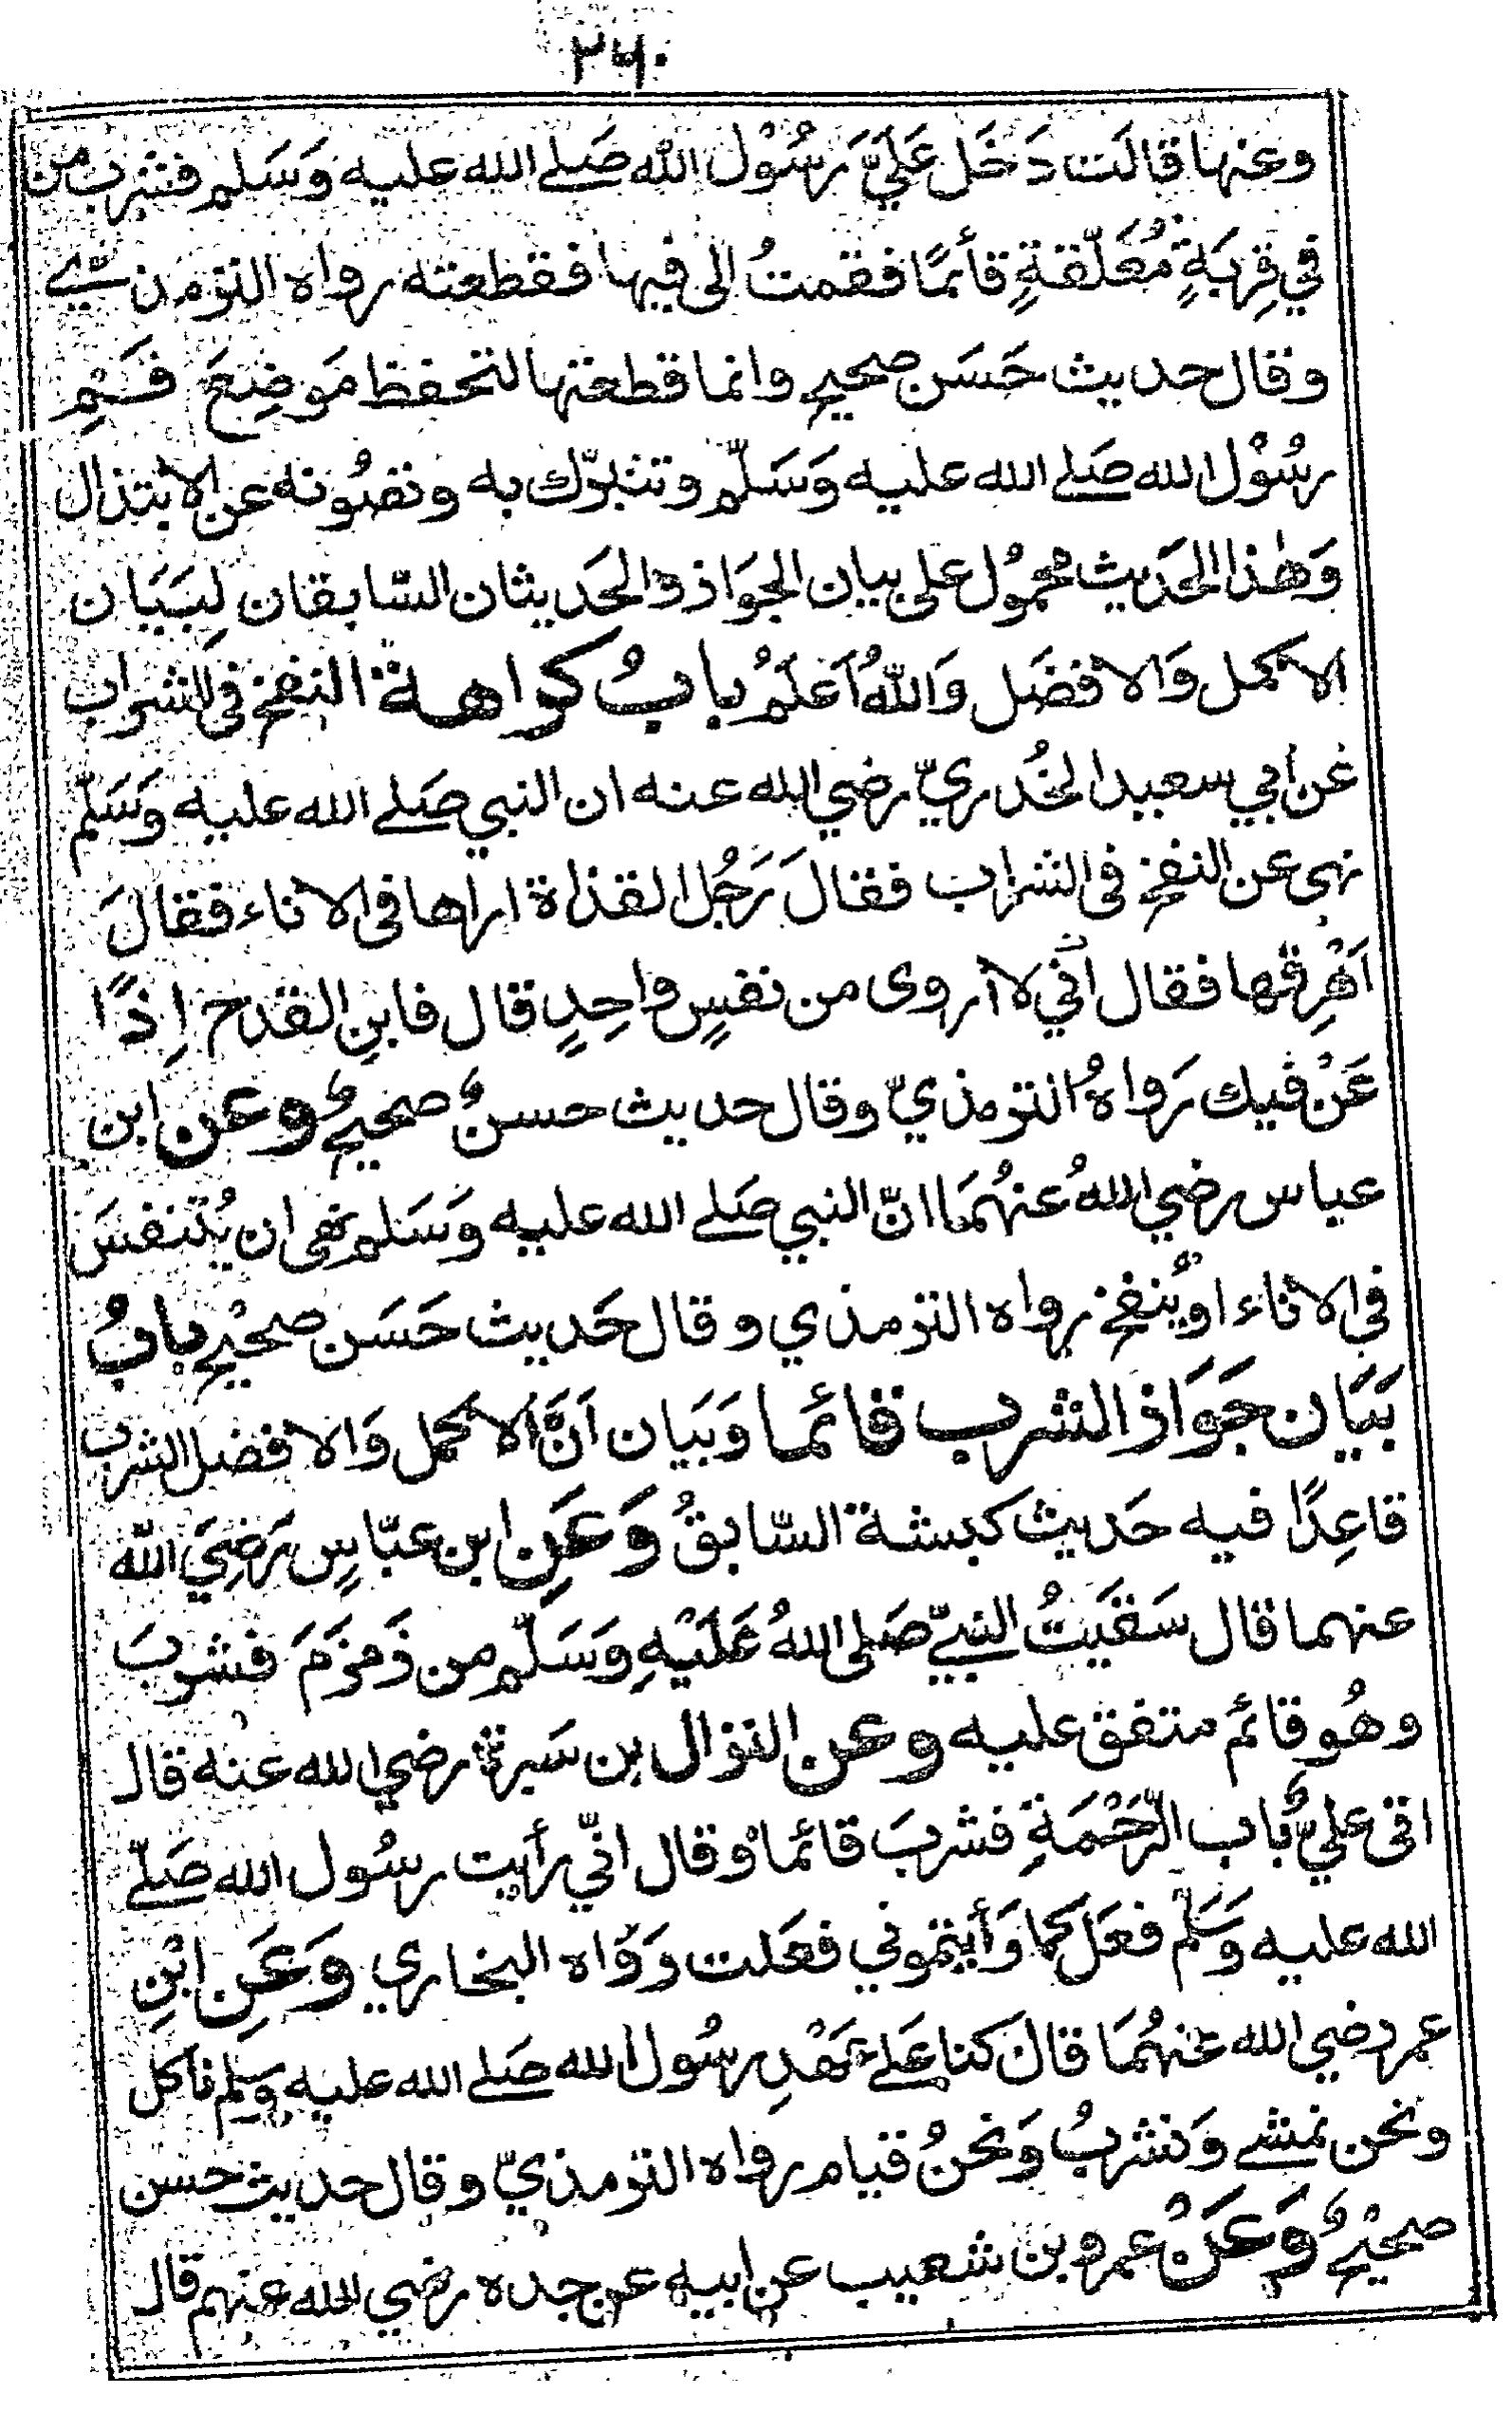 ٢٦٠
وعنها قالت دَخَل عَلَيَّ رَسُوْل الله صَلے الله عليه وَسَلم فشرب من
في قِربَةٍ مُعَلّقةٍ قأئمًا فقمتُ الى فيها فقطعته رواه الترمذي
وقال حديث حَسَن صحيح وانما قطعتها لتحفظ مَوضِعَ فَمِ
رسُوْل الله صَلے الله عليه وَسَلّم وتتبرّك به وتصُونه عن الابتذال
وَهٰذا الحَديث محمُول على بيان الجَوَاز والحَديثان السّابقان لِبَيَان
الاكمل وَالافضَل وَاللّٰهُ اَعلَمُ بابُ كراهة النفخ فى الشراب
عَن ابي سعيد الخُدريّ رضي الله عنه ان النبي صَلے الله عليه وَسَلّم
نهى عن النفخ فى الشراب فقالَ رَجُل القذاة اراها فى الاناء فقالَ
اَهْرِقها فقال انّي لا اَروى من نفسٍ واحِدٍ قال فابنِ القدح اِذًا
عَنْ فيك رَواهُ الترمذيّ وقال حديث حسنٌ صحيحٌ وعن ابن
عباس رضي اللهُ عنهُمَا انّ النبي صَلے الله عليه وَسَلم نهى ان يُتنفسَ
في الاناء او يُنفخ رواه الترمذي وقال حَديث حَسَن صحيْح بابُ
بَيَان جَوَاز الشرب قائما وَبَيَان اَنَّ الاكمل وَالافضل الشرب
قاعِدًا فيه حَديث كبشة السّابقُ وَعَنِ ابن عبّاسٍ رَضِيَ اللّٰه
عنهما قال سَقَيتُ النبيّ صَلى اللهُ عَلَيْهِ وَسَلّم من زَمزَمَ فشربَ
وهُو قائم متفق عليه وعن النزال بن سَبرة رضي الله عنه قال
اتى عليٌّ بَاب الرَّحْمَةِ فشربَ قائما وقال انّي رأيت رسُول الله صَلّے
الله عليه وَسَلَّم فعَل كما رَأيتموني فعَلت رَوَاه البخاري وَعَنِ ابْنِ
عمر رضي الله عَنهُمَا قالَ كنا عَلے عَهْدِ رسُول الله صَلے الله عليه وسلم نأكل
ونحن نمشے وَنشربُ وَنحنُ قيام رواه الترمذيّ وقال حديث حسن
صحيْحٌ وَعَنْ عمرو بن شعيب عن ابيه عن جده رضي الله عنهم قال